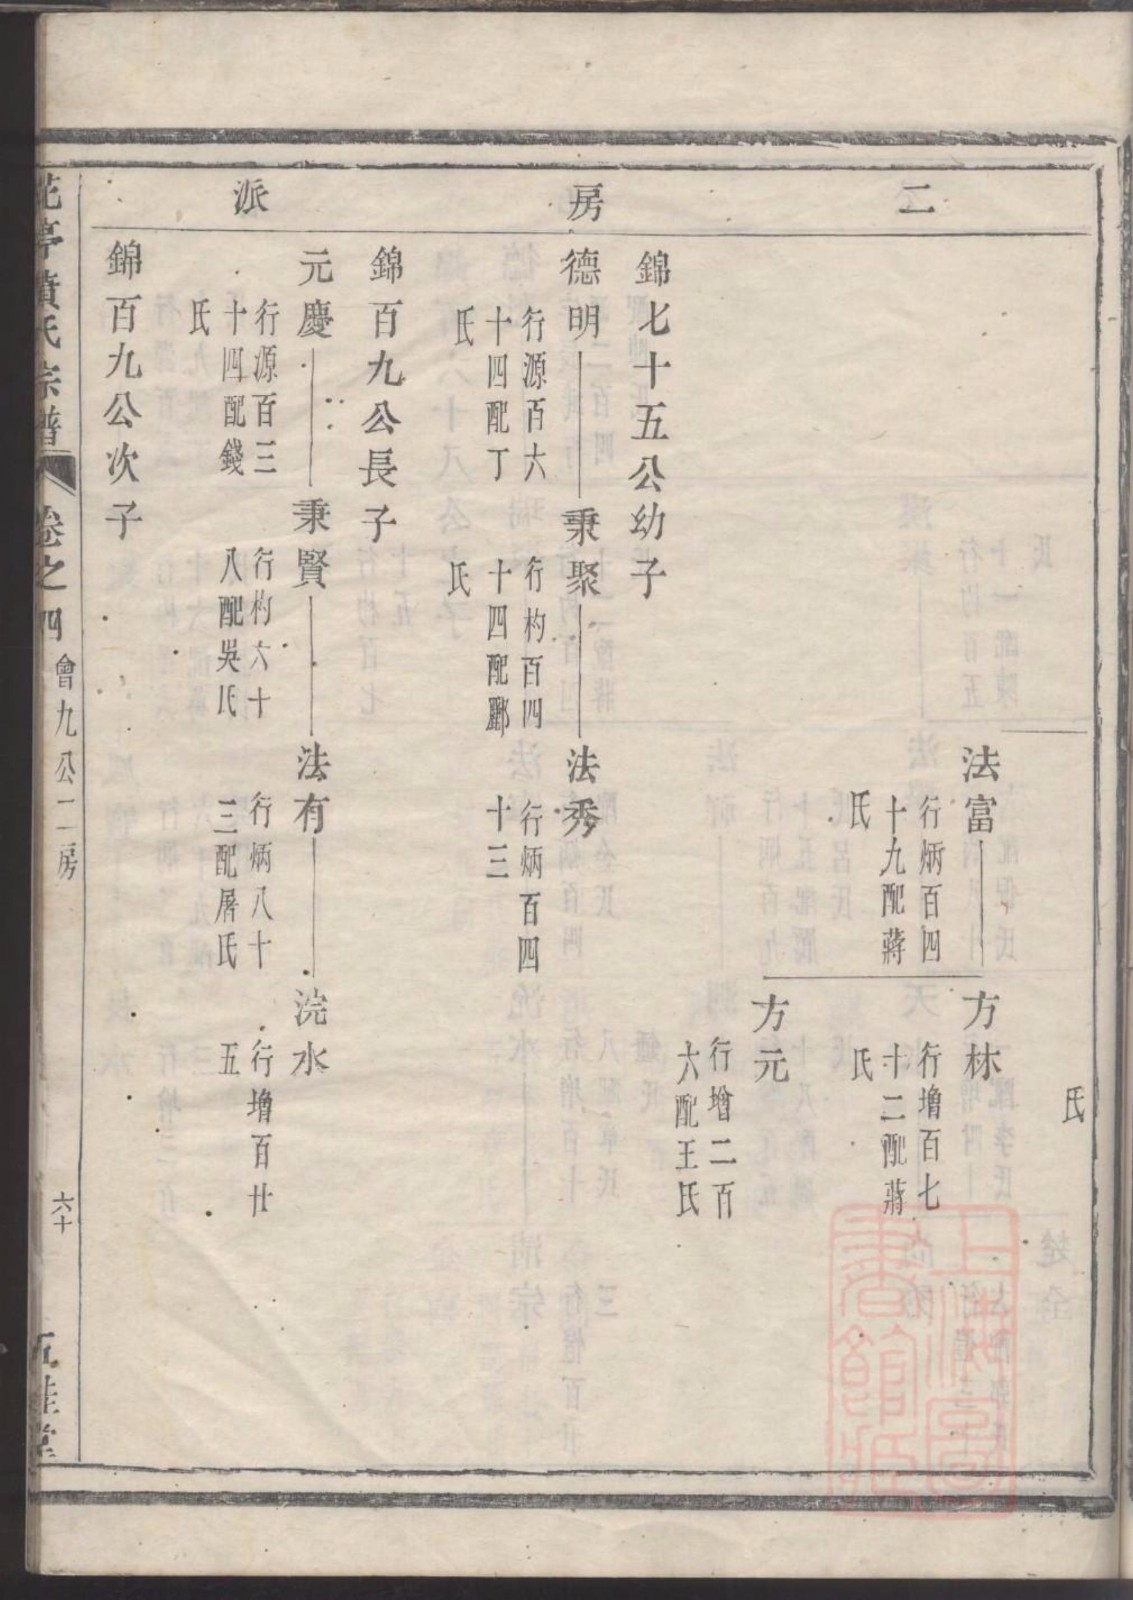 二房派
氏
法富
行炳百四
十九配蔣
氏
方林
行增百七
十二配蔣
氏
方元
行增二百
六配王氏
錦七十五公幼子
德明
行源百六
十四配丁
氏
秉聚
行杓百四
十四配酈
氏
法秀
行炳百四
十三
錦百九公長子
元慶
行源百三
十四配錢
氏
秉賢
行杓六十
八配吳氏
法有
行炳八十
三配屠氏
浣水
行增百廿
五
錦百九公次子
花亭黃氏宗譜
卷之四
會九公二房
六十
五桂堂
上海圖書館藏